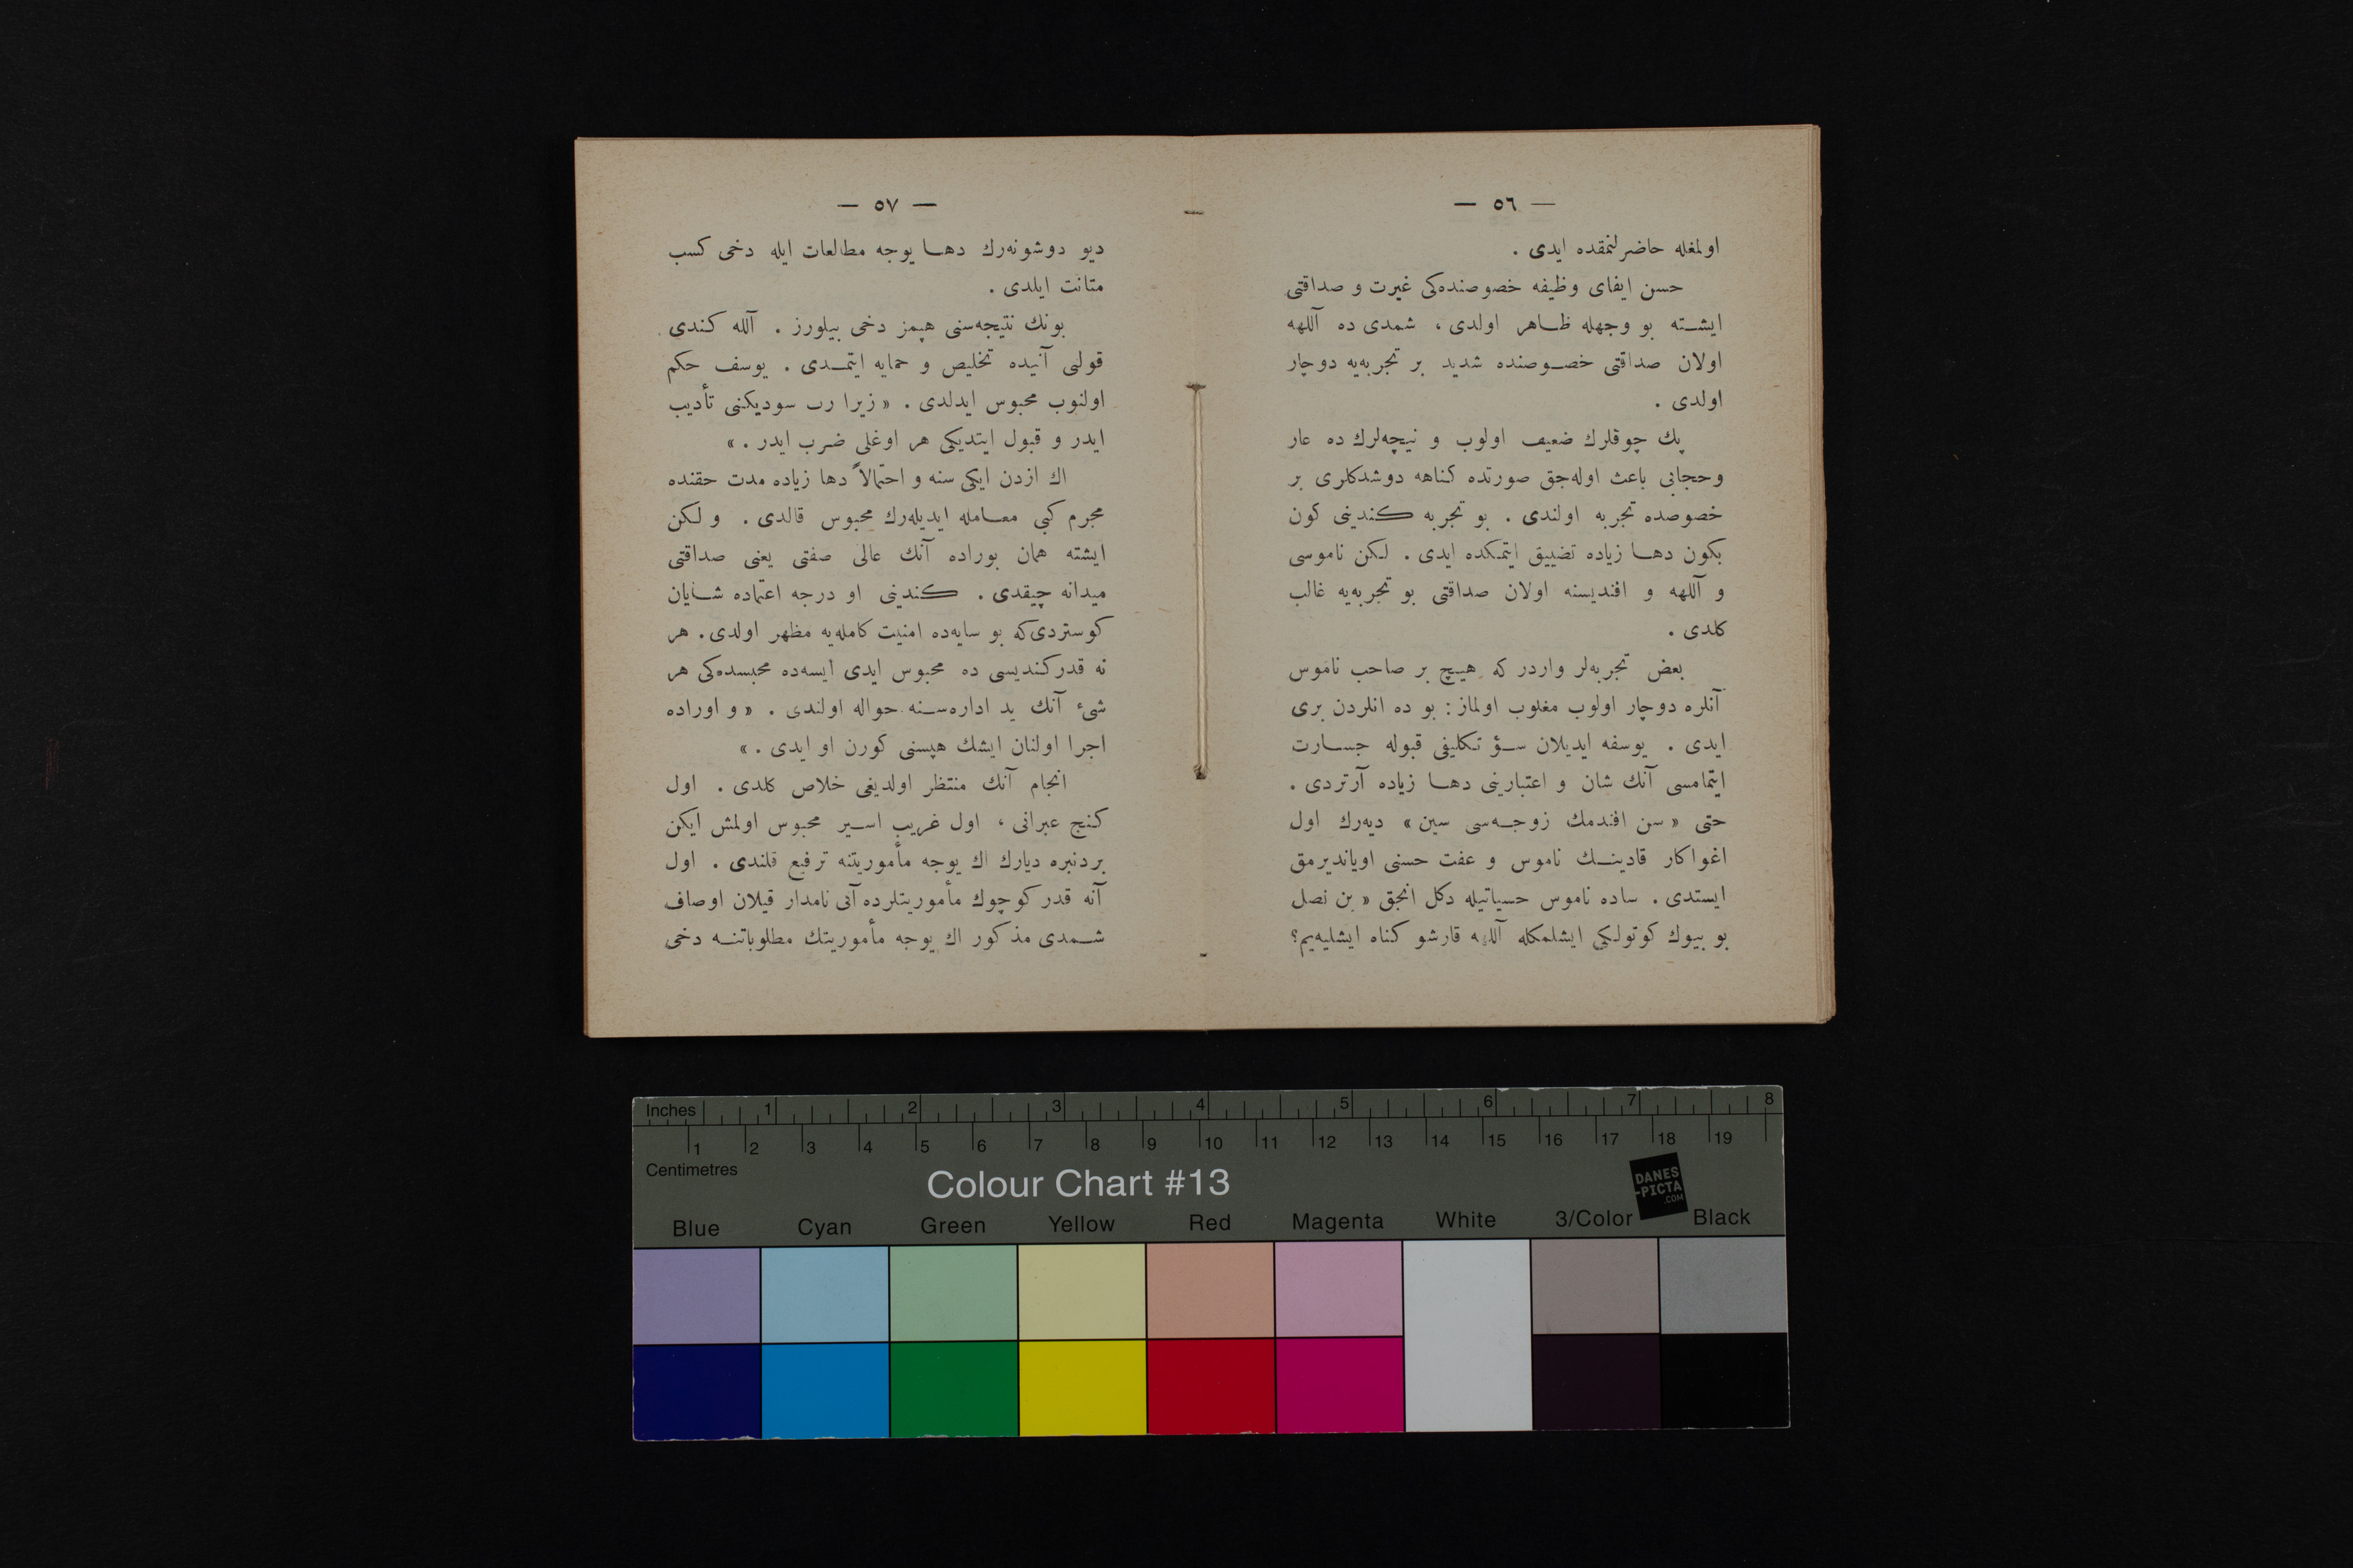 — ٥٦ —
اولمغله حاضرلنمقده ایدی .
حسن ایفای وظیفه خصوصنده‌کی غیرت و صداقتی
ایشته بو وجهله ظاهر اولدی ، شمدی ده آللهه
اولان صداقتی خصوصنده شدید بر تجربه‌یه دوچار
اولدی .
پك چوقلرك ضعیف اولوب و نیچه‌لرك ده عار
وحجابی باعث اوله‌جق صورتده کناهه دوشدکلری بر
خصوصده تجربه اولندی . بو تجربه کندینی کون
بکون دها زیاده تضییق ایتمکده ایدی . لکن ناموسی
و آللهه و افندیسنه اولان صداقتی بو تجربه‌یه غالب
کلدی .
بعض تجربه‌لر واردر که هیچ بر صاحب ناموس
آنلره دوچار اولوب مغلوب اولماز : بو ده انلردن بری
ایدی . یوسفه ایدیلان سؤ تکلیفی قبوله جسارت
ایتمامسی آنك شان و اعتبارینی دها زیاده آرتردی .
حتی « سن افندمك زوجه‌سی سین » دیه‌رك اول
اغواکار قادینك ناموس و عفت حسنی اویاندیرمق
ایستدی . ساده ناموس حسیاتیله دکل انجق « بن نصل
بو بیوك کوتولکی ایشلمکله آللهه قارشو کناه ایشلیه‌یم؟
— ٥٧ —
دیو دوشونه‌رك دها یوجه مطالعات ایله دخی کسب
متانت ایلدی .
بونك نتیجه‌سنی هپمز دخی بیلورز . آلله کندی
قولی آنیده تخلیص و حمایه ایتمدی . یوسف حکم
اولنوب محبوس ایدلدی . « زیرا رب سودیکنی تأدیب
ایدر و قبول ایتدیکی هر اوغلی ضرب ایدر . »
اك ازدن ایکی سنه و احتمالاً دها زیاده مدت حقنده
مجرم کبی معامله ایدیله‌رك محبوس قالدی . و لکن
ایشته همان بوراده آنك عالی صفتی یعنی صداقتی
میدانه چیقدی . کندینی او درجه اعتماده شایان
کوستردی‌که بو سایه‌ده امنیت کامله‌یه مظهر اولدی . هر
نه قدر کندیسی ده محبوس ایدی ایسه‌ده محبسده‌کی هر
شیء آنك ید اداره‌سنه حواله اولندی . « و اوراده
اجرا اولنان ایشك هپسنی کورن او ایدی . »
انجام آنك منتظر اولدیغی خلاص کلدی . اول
کنج عبرانی ، اول غریب اسیر محبوس اولمش ایکن
بردنبره دیارك اك یوجه مأموریتنه ترفیع قلندی . اول
آنه قدر کوچوك مأموریتلرده آنی نامدار قیلان اوصاف
شمدی مذکور اك یوجه مأموریتك مطلوباتنه دخی
Inches 1 2 3 4 5 6 7 8
1 2 3 4 5 6 7 8 9 10 11 12 13 14 15 16 17 18 19
Centimetres
Colour Chart #13
DANES
-PICTA
.COM
Blue Cyan Green Yellow Red Magenta White 3/Color Black